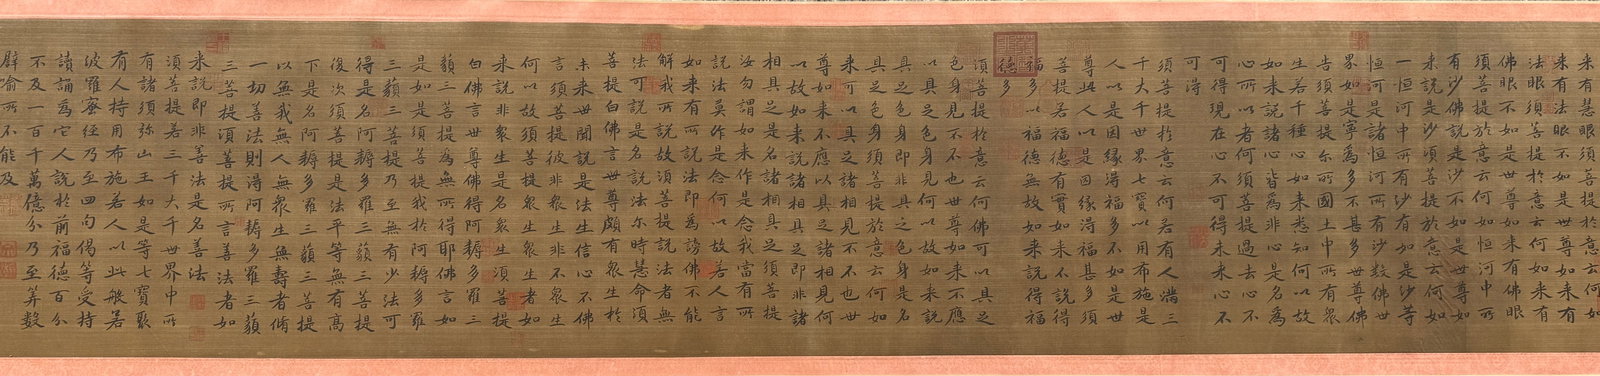 來有慧眼須菩提於意云何如
來有法眼不如是世尊如來有
法眼須菩提於意云何如來有
佛眼不如是世尊如來有佛眼
須菩提於意云何如恒河中所
有沙佛說是沙不如是世尊如
來說是沙須菩提於意云何如
一恒河中所有沙有如是沙等
恒河是諸恒河所有沙數佛世
界如是寧為多不甚多世尊佛
告須菩提尒所國土中所有衆
生若干種心如來悉知何以故
如來說諸心皆為非心是名為
心所以者何須菩提過去心不
可得現在心不可得未來心不
可得
須菩提於意云何若有人滿三
千大千世界七寶以用布施是
人以是因緣得福多不如是世
尊此人以是因緣得福甚多須
菩提若福德有實如來不說得
福德多以福德無故如來說得福
德多
須菩提於意云何佛可以具足
色身見不不也世尊如來不應
以具足色身見何以故如來說
具足色身即非具足色身是名
具足色身須菩提於意云何如
來可以具足諸相見不不也世
尊如來不應以具足諸相見何
以故如來說諸相具足即非諸
相具足是名諸相具足須菩提
汝勿謂如來作是念我當有所
說法莫作是念何以故若人言
如來有所說法即為謗佛不能
解我所說故須菩提說法者無
法可說是名說法尒時慧命須
菩提白佛言世尊頗有衆生於
未來世聞說是法生信心不佛
言須菩提彼非衆生非不衆生
何以故須菩提衆生衆生者如
來說非衆生是名衆生須菩提
白佛言世尊佛得阿耨多羅三
藐三菩提為無所得耶佛言如
是如是須菩提我於阿耨多羅
三藐三菩提乃至無有少法可
得是名阿耨多羅三藐三菩提
復次須菩提是法平等無有高
下是名阿耨多羅三藐三菩提
以無我無人無衆生無壽者脩
一切善法則得阿耨多羅三藐
三菩提須菩提所言善法者如
來說即非善法是名善法
須菩提若三千大千世界中所
有諸須弥山王如是等七寶聚
有人持用布施若人以此般若
波羅蜜經乃至四句偈等受持
讀誦為它人說於前福德百分
不及一百千萬億分乃至筭數
譬喻所不能及